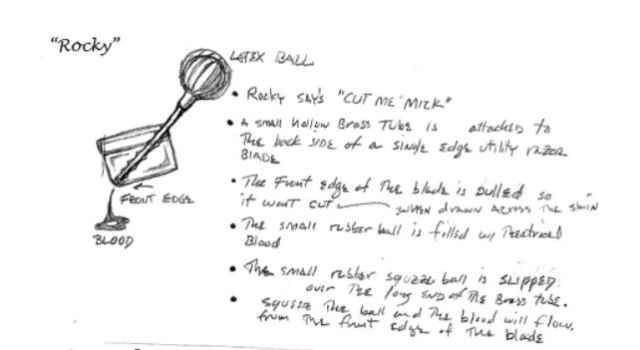 "Rocky"
LATEX BALL
• Rocky SAY'S "CUT ME MICK"
• A small hollow Brass Tube is attached to
The back side of a single edge utility razor
BLADE
• The Front edge of the blade is dulled so
it wont cut when drawn across the skin
FRONT EDGE
• The small rubber ball is filled w/ Theatrical
Blood
BLOOD
• The small rubber squzze ball is slipped
over The long end of the Brass tube.
• squeeze The ball and The blood will flow
from The front edge of the blade